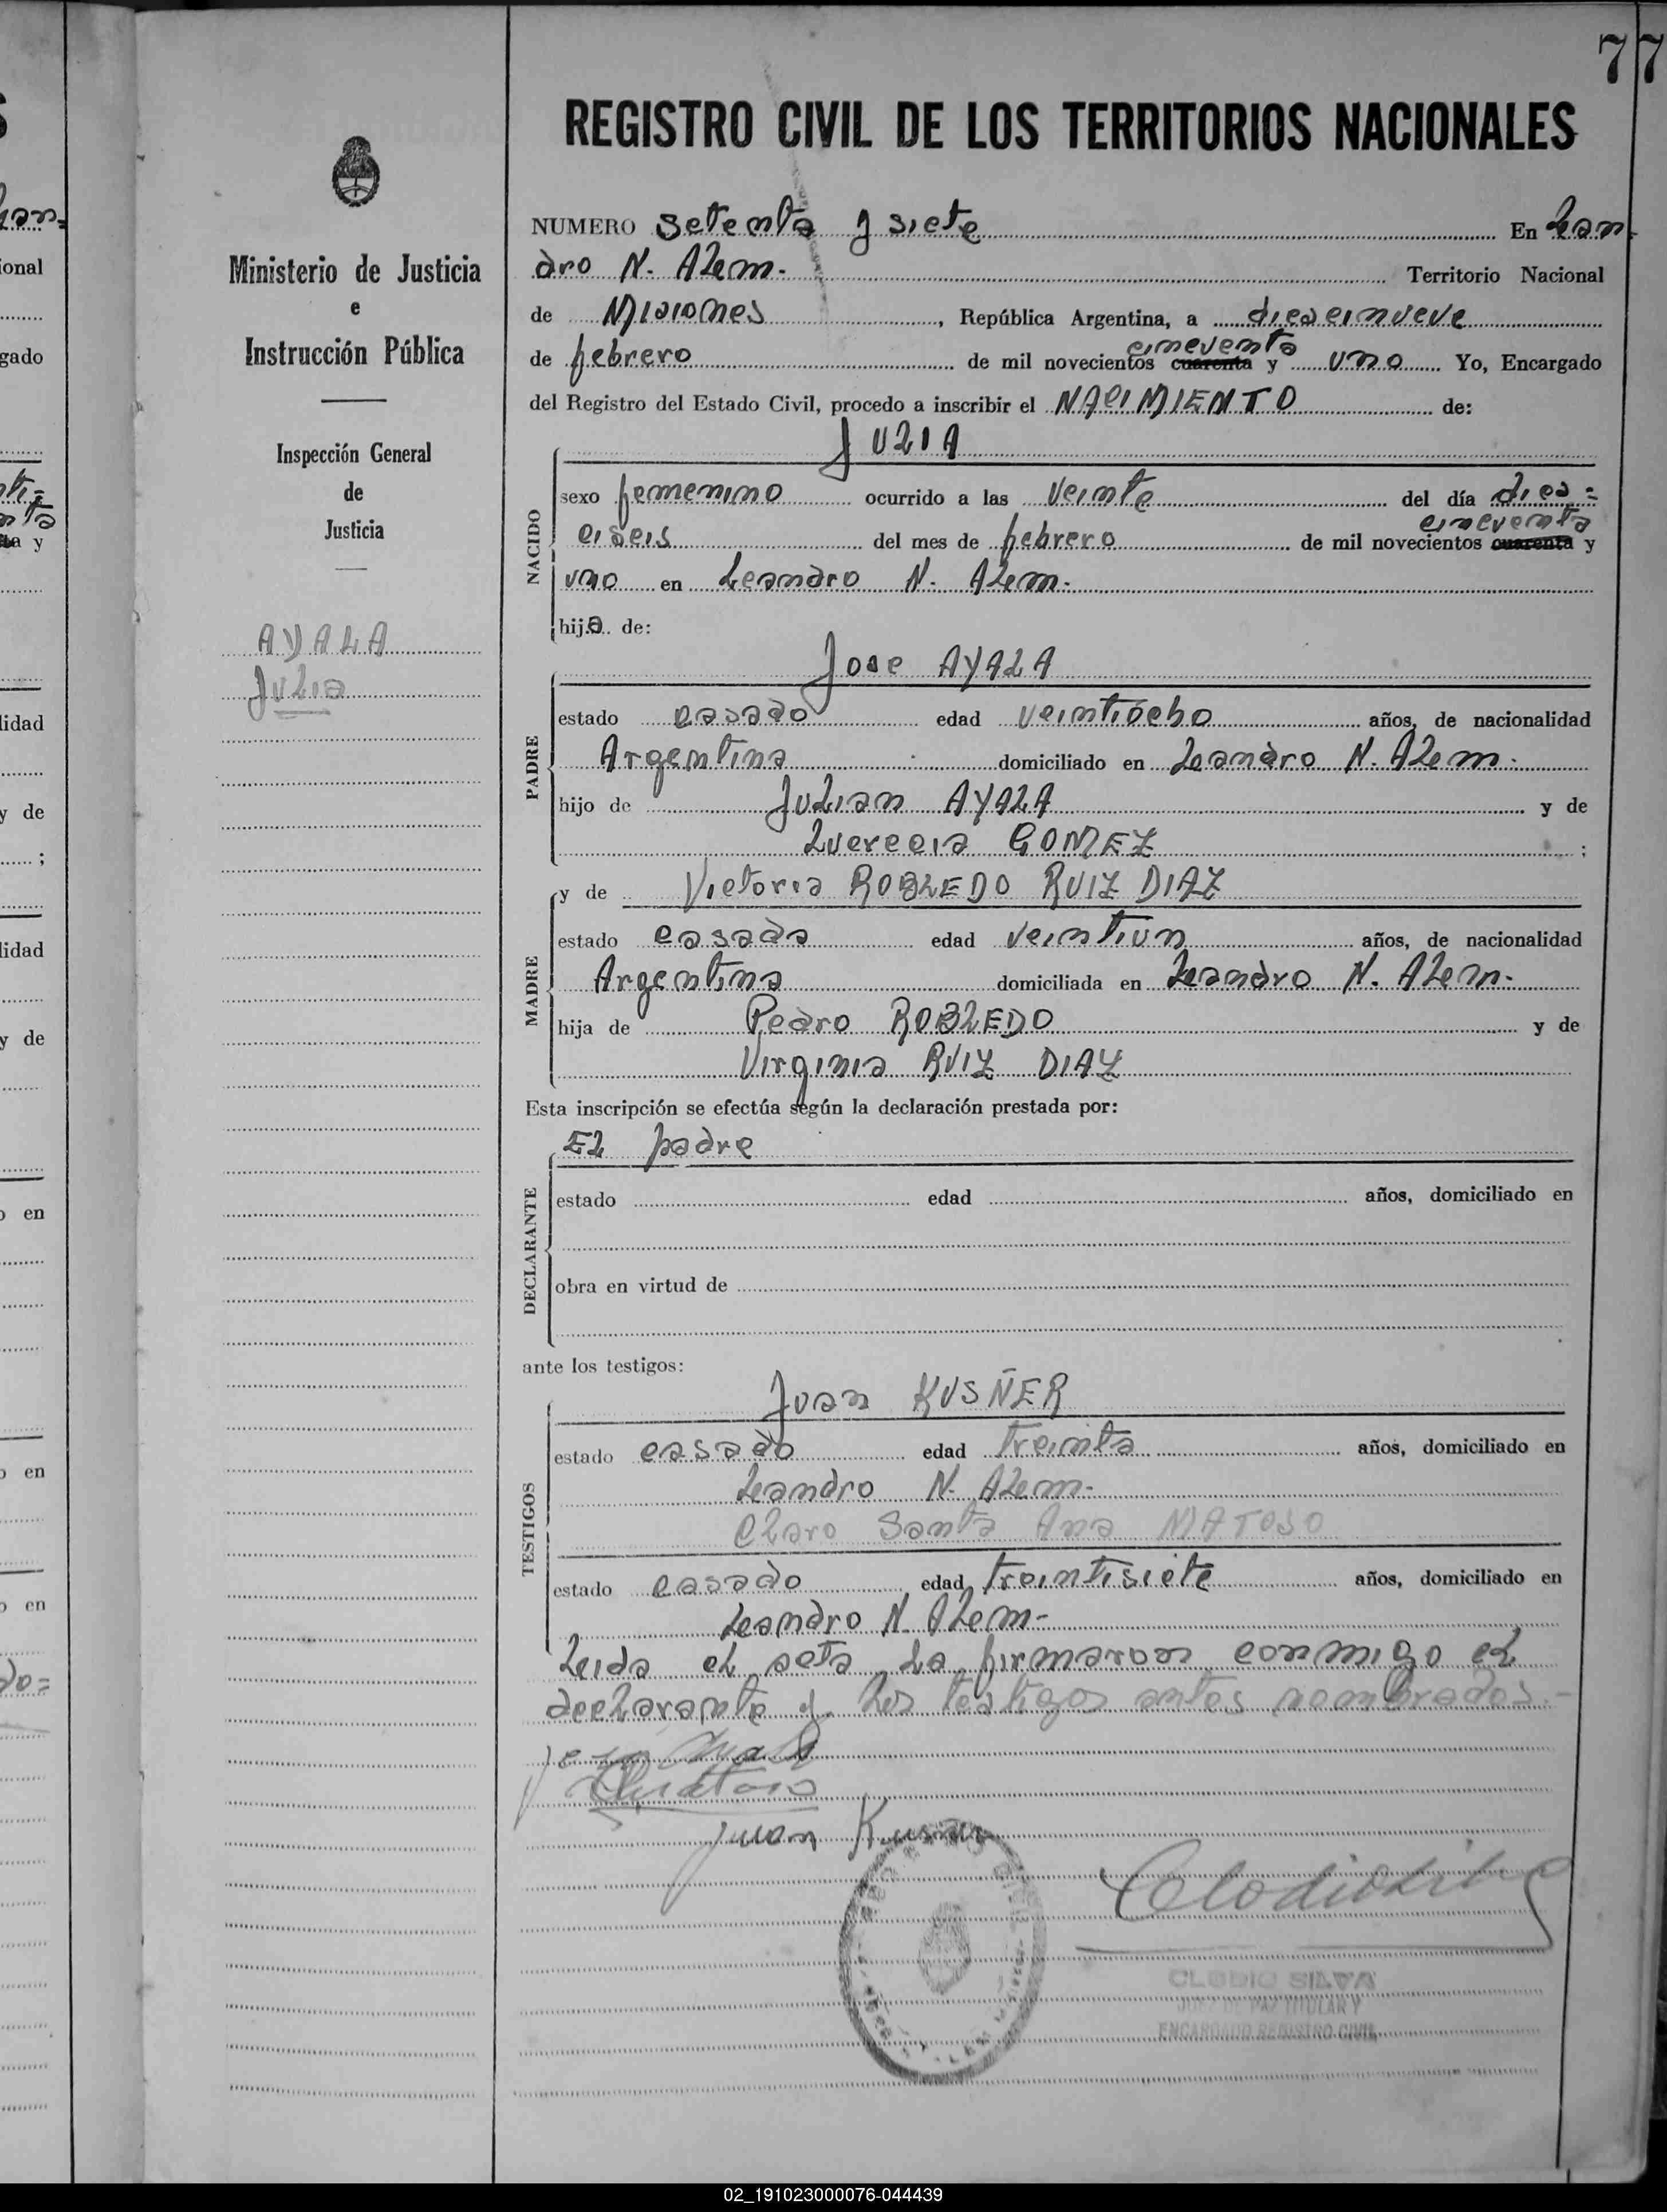 77
REGISTRO CIVIL DE LOS TERRITORIOS NACIONALES
NUMERO setenta y siete En Lean
dro N. Alem. Territorio Nacional
de Misiones, República Argentina, a diecinueve
cincuenta
de febrero de mil novecientos cuarenta y uno Yo, Encargado
del Registro del Estado Civil, procedo a inscribir el NACIMIENTO de:
JULIA
NACIDO
sexo femenino ocurrido a las veinte del día diec=
cincuenta
iseis del mes de febrero de mil novecientos cuarenta y
uno en Leandro N. Alem.
hija de:
Jose AYALA
PADRE
estado casado edad veintiocho años, de nacionalidad
Argentina domiciliado en Leandro N. Alem.
hijo de Julian AYALA y de
Lucrecia GOMEZ ;
y de Victoria ROBLEDO RUIZ DIAZ
MADRE
estado casada edad veintiun años, de nacionalidad
Argentina domiciliada en Leandro N. Alem.
hija de Pedro ROBLEDO y de
Virginia RUIZ DIAZ
Esta inscripción se efectúa según la declaración prestada por:
El padre
DECLARANTE
estado edad años, domiciliado en
obra en virtud de
ante los testigos:
Juan KUSÑER
TESTIGOS
estado casado edad treinta años, domiciliado en
Leandro N. Alem.
Claro Santa Ana MATOSO
estado casado edad treintisiete años, domiciliado en
Leandro N. Alem-
Leida el acta la firmaron conmigo el
declarante y los testigos antes nombrados.-
Juan Kusñer
CLODIO SILVA
JUEZ DE PAZ TITULAR Y
ENCARGADO REGISTRO CIVIL
Ministerio de Justicia
e
Instrucción Pública
Inspección General
de
Justicia
AYALA
Julia
ional
gado
lidad
y de
;
lidad
y de
en
en
en
02_191023000076-044439